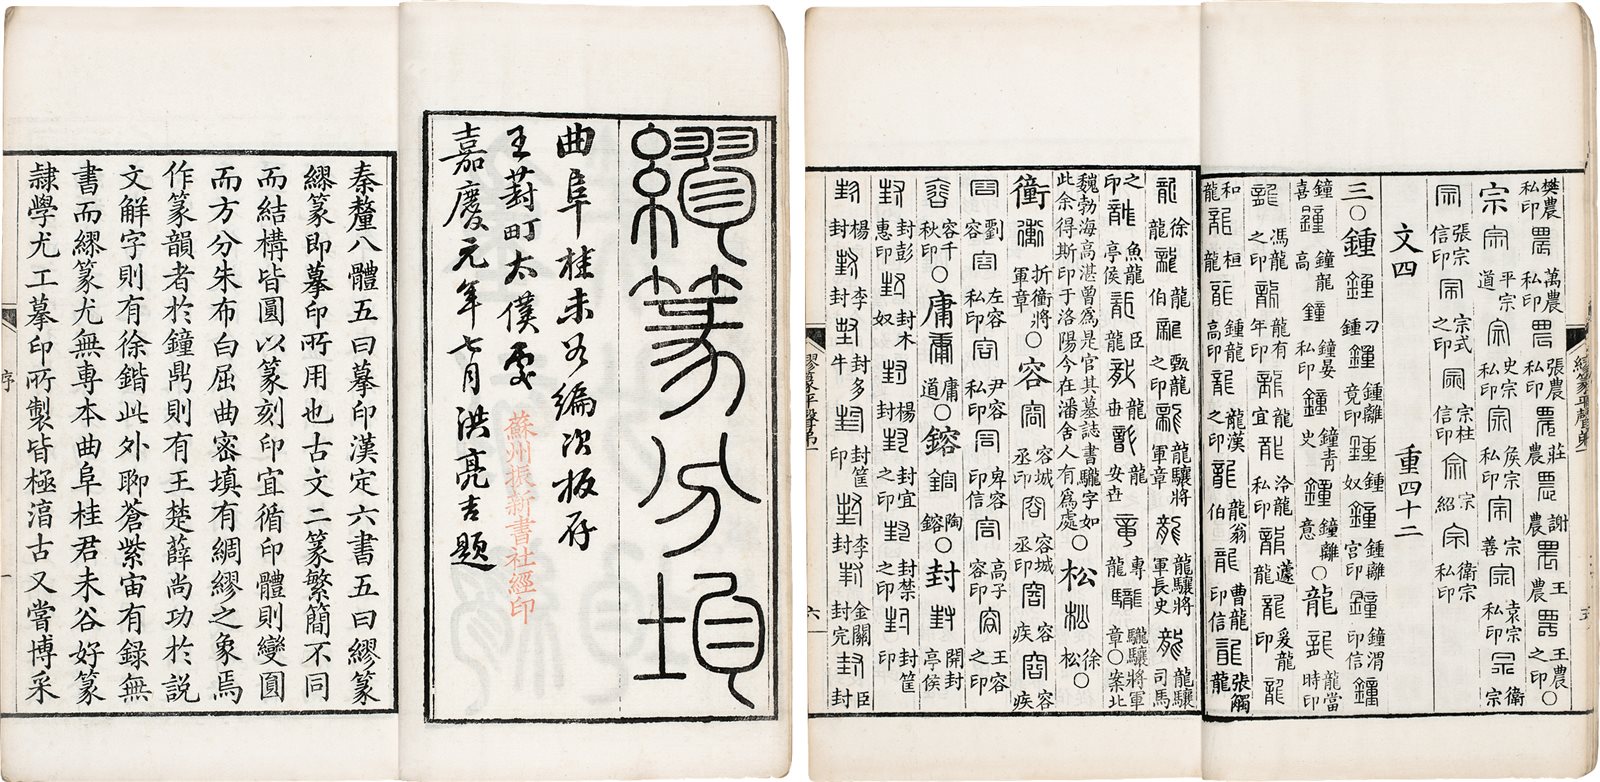 繆篆分均
曲阜桂未谷編次板存
王葑町太僕處
嘉慶元年七月洪亮吉題
蘇州振新書社經印
秦釐八體五曰摹印漢定六書五曰繆篆
繆篆即摹印所用也古文二篆繁簡不同
而結構皆圓以篆刻印宜循印體則變圓
而方分朱布白屈曲密填有綢繆之象焉
作篆韻者於鐘鼎則有王楚薛尚功於說
文解字則有徐鍇此外聊蒼紫宙有錄無
書而繆篆尤無專本曲阜桂君未谷好篆
隸學尤工摹印所製皆極滈古又嘗博采
序
一
樊農私印 農 萬農私印 農 張農私印 農 莊農 農 謝農 農 王農 農 王農之印○
宗宗 平宗道 宗 史宗私印 宗 矦宗私印 宗 宗善 宗 袁宗私印 宗 衛宗
宗 張宗信印 宗 宗式之印 宗 宗柱信印 宗 宗紹 宗 衛宗私印
文四 重四十二
三○鍾鍾 刁鍾 鍾 鍾離竟印 鍾 鍾奴 鍾 鍾離宮印 鍾 鍾渭印信 鐘
鐘喜 鐘 鐘龍高 鐘 鐘晏私印 鐘 鐘青史 鐘 鐘離意○龍龍 龍當時印
龍 馮龍之印 龍 龍有年印 龍 龍宜 龍 泠龍私印 龍 龍遽 龍 爰龍印 龍
和龍 龍 桓龍 龍 鍾龍高印 龍 龍漢之印 龍 龍翁伯 龍 曹龍印信 龍 張觸龍
繆篆平聲弟一
五
龍 徐龍 龍 龍伯 龍 甄龍之印 龍 龍驤將軍章 龍 龍驤將軍長史 龍 龍驤司馬
之印 龍 魚龍亭侯 龍 臣龍 龍 龍毋 龍 龍安世 竜 專龍 驡 驡驤將軍章○案北
魏勃海高湛曾爲是官其墓誌書驡字如此余得斯印于洛陽今在潘舍人有爲處○松松 徐松○
衝衝 折衝將軍章○容容 容城丞印 容 容城丞印 容 容疾 容 容疾
容 劉容 容 左容私印 容 尹容 容 卑容印信 容 高子容印 容 王容之印
容 容千秋印○庸庸 庸道○鎔鎔 陶鎔○封封 開封亭侯
封 封彭惠印 封 封木奴 封 楊封 封 封宜之印 封 封禁之印 封 封筐印
封 楊封 封 李封 封 封多牛 封 封筐印 封 李封 封 金關封完 封 臣封
繆篆平聲弟一
六